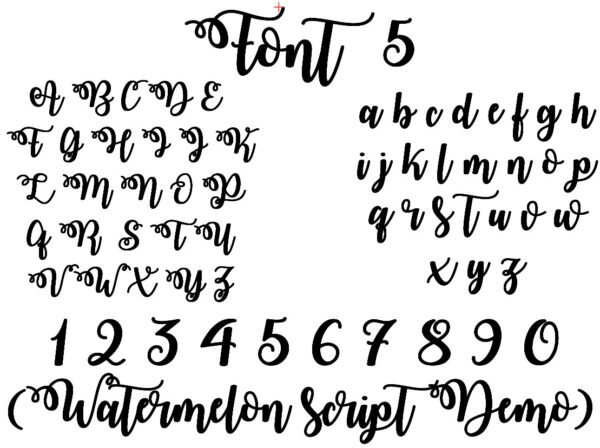 Font 5
A B C D E
F G H I J K
L M N O P
Q R S T U
V W X Y Z
a b c d e f g h
i j k l m n o p
q r s t u v w
x y z
1 2 3 4 5 6 7 8 9 0
(Watermelon Script Demo)